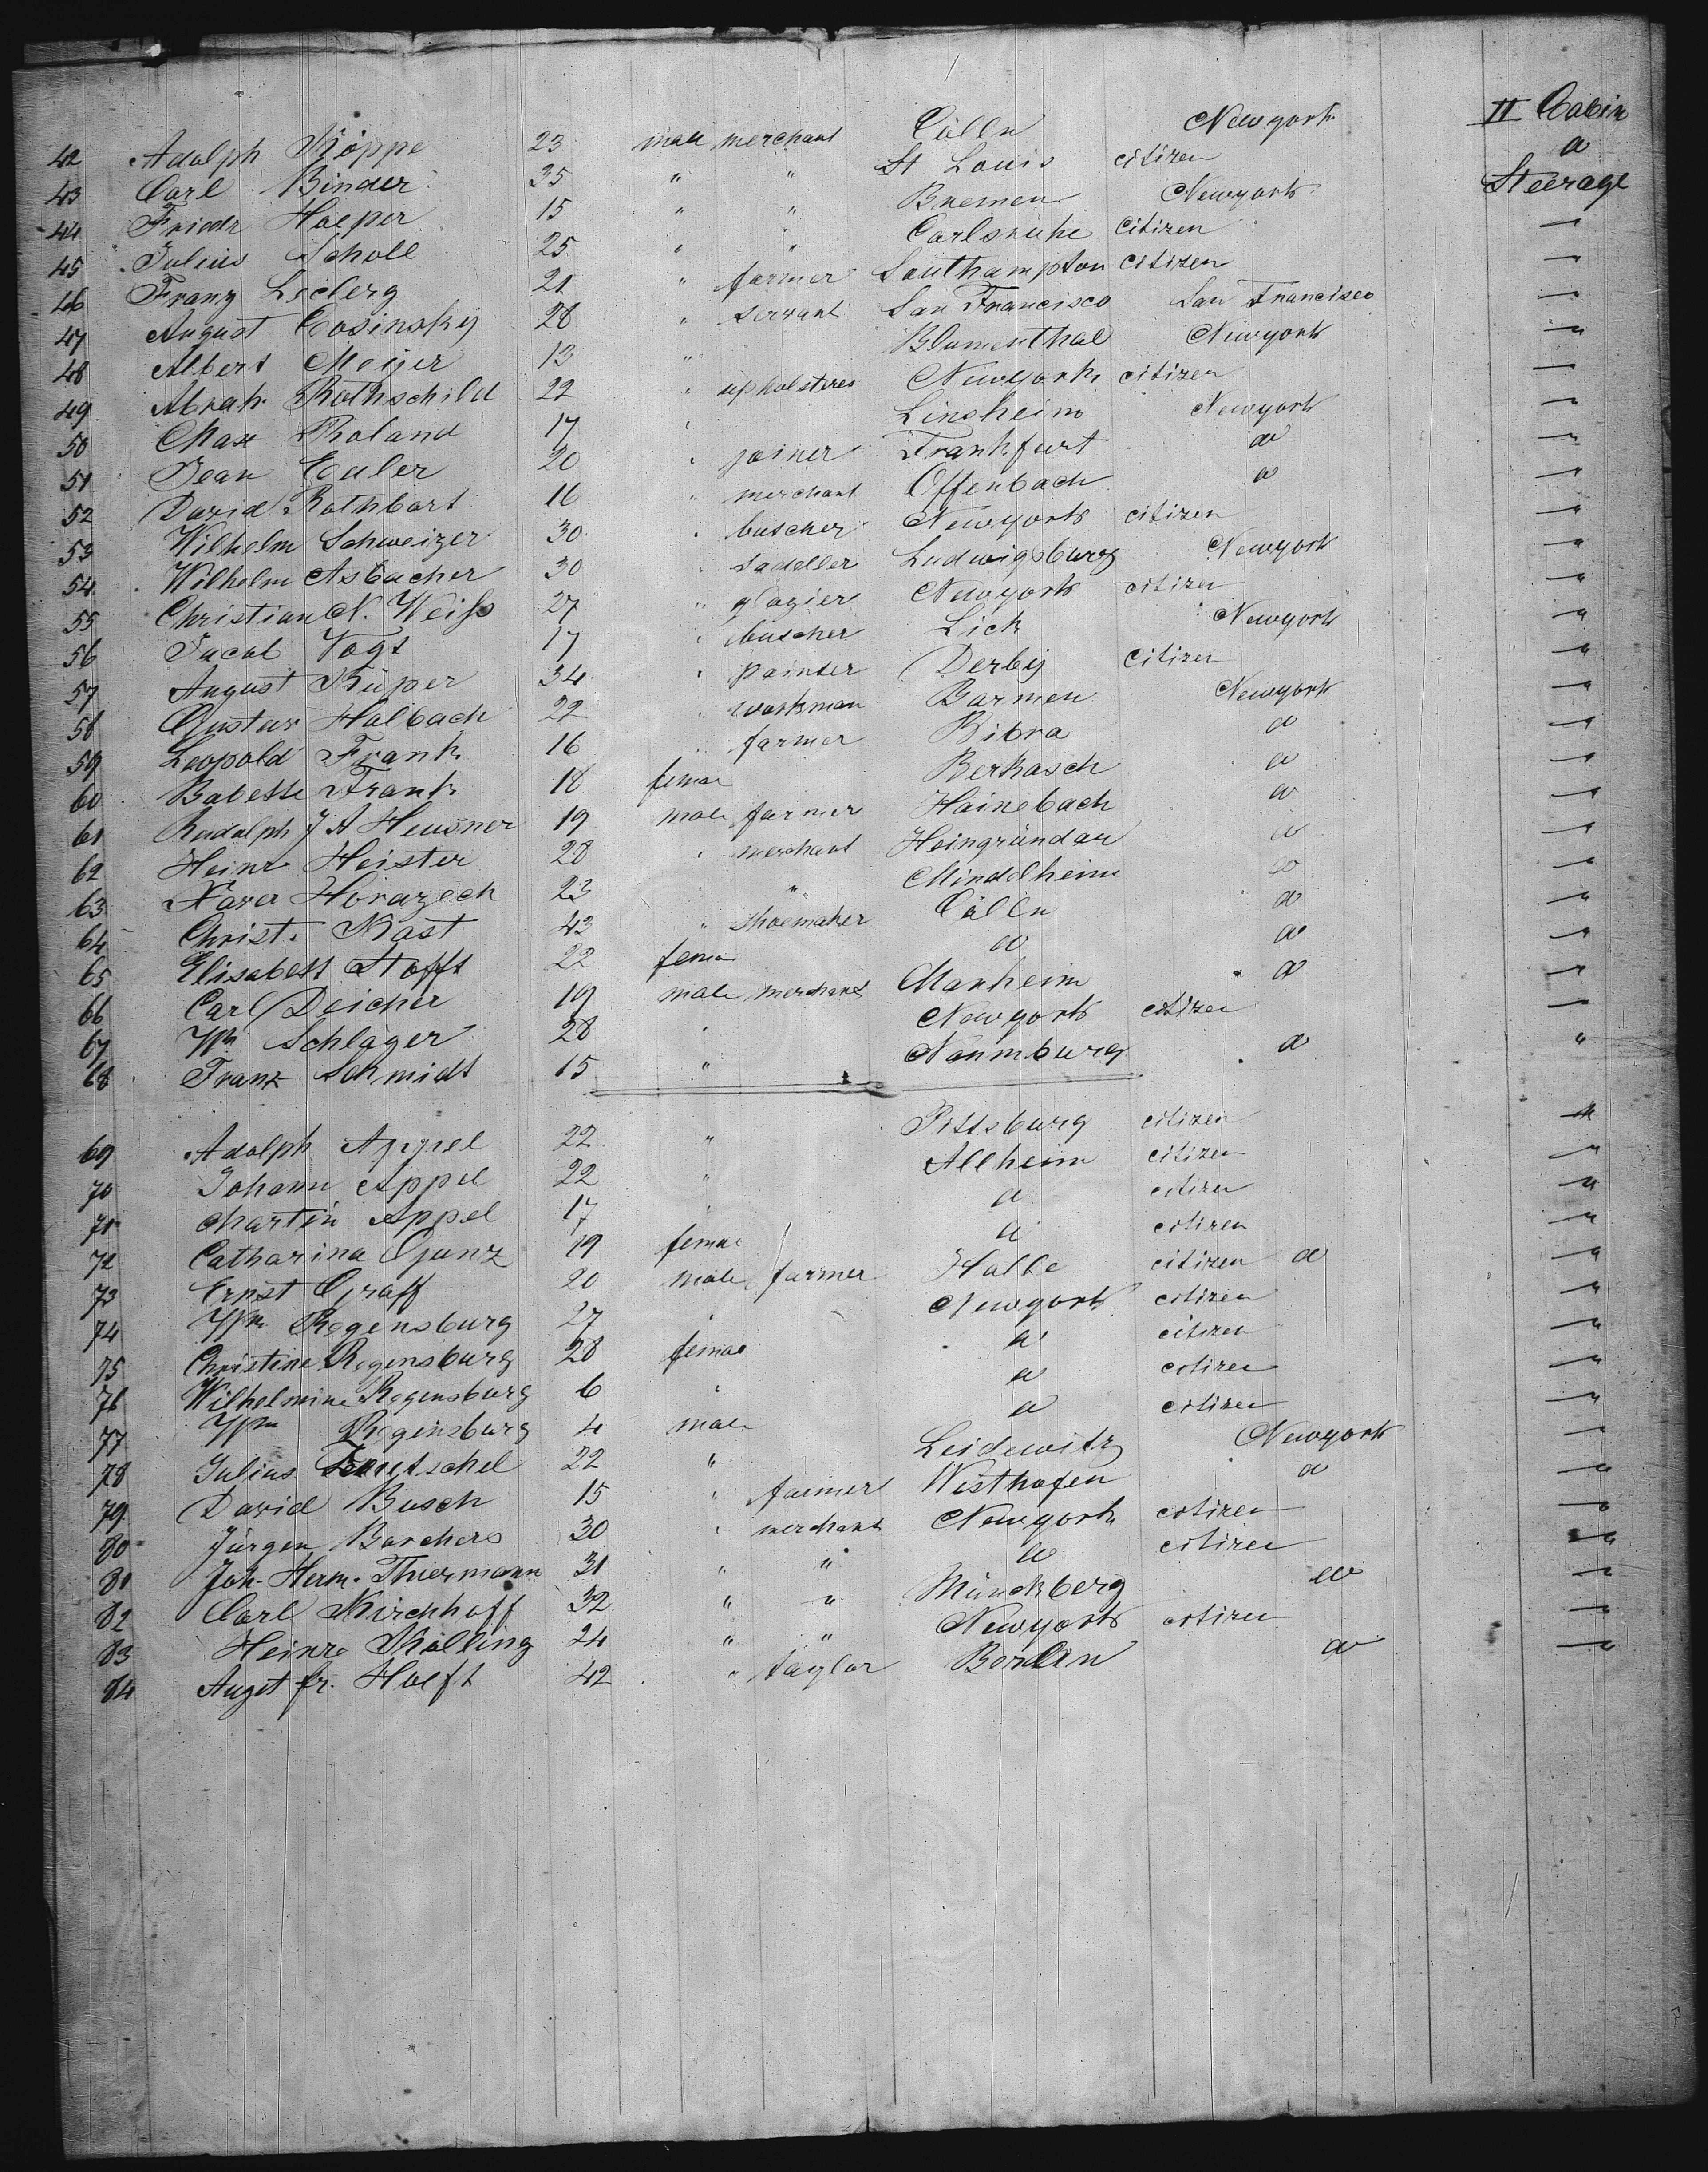 42 Adolph Köppe 23 male merchant Cölln Newyork II Cabin
43 Carl Binder 35 " " St Louis citizen a
44 Friedr Hoeper 15 " " Bremen Newyork Steerage
45 Julius Scholl 25 " " Carlsruhe Citizen "
46 Franz Leclerg 21 " farmer Southampton Citizen "
47 August Cosinsky 28 " servant San Francisco San Francisco "
48 Albert Meijer 13 " Blumenthal Newyork "
49 Abrah. Rothschild 22 " upholsteres Newyork citizen "
50 Max Roland 17 " Linsheim Newyork "
51 Jean Euler 20 " joiner Frankfurt a "
52 David Rothbart 16 " merchant Offenbach a "
53 Wilhelm Schweizer 30 " buscher Newyork citizen "
54 Wilhelm Asbacher 30 " sadeller Ludwigsburg Newyork "
55 Christian N. Weiſs 27 " glazier Newyork citizen "
56 Jacob Vogt 17 " buscher Lich Newyork "
57 August Küper 34 " painter Derby Citizen "
58 Gustav Halbach 22 " workman Barmen Newyork "
59 Leopold Frank 16 " farmer Bibra a "
60 Babette Frank 18 femae Berkasch a "
61 Rudolph J A Heusner 19 male farmer Hainebach a "
62 Heinr Heister 28 " merchant Heingründau a "
63 Xaver Horazech 23 " " Mindelheim a "
64 Christ. Kast 43 " shoemaker Cölln a "
65 Elisabett Stofft 22 fema a a "
66 Carl Deicher 19 male merchant Manheim a "
67 Wm Schläger 28 " Newyork citizen "
68 Franz Schmidt 15 " Naumburg a "
69 Adolph Appel 22 " Pittsburg citizen "
70 Johann Appel 22 " Allheim citizen "
71 Martin Appel 17 " a citizen "
72 Catharina Gunz 19 femae a citizen "
73 Ernst Graff 20 male farmer Halle citizen a "
74 Wm Regensburg 27 " Newyork citizen "
75 Christine Regensburg 28 femae a citizen "
76 Wilhelmine Regensburg 6 " a citizen "
77 Wm Regensburg 4 male a citizen "
78 Julius Trautschel 22 " Leidewitz Newyork "
79 David Busch 15 " farmer Westhofen a "
80 Jürgen Borchers 30 " merchant Newyork citizen "
81 Joh. Herm. Thiermann 31 " " a citizen "
82 Carl Kirchhoff 32 " " Münckberg a "
83 Heinr. Kölling 24 " " Newyork citizen "
84 Augst fr. Hoeft 42 " taylor Berlin a "